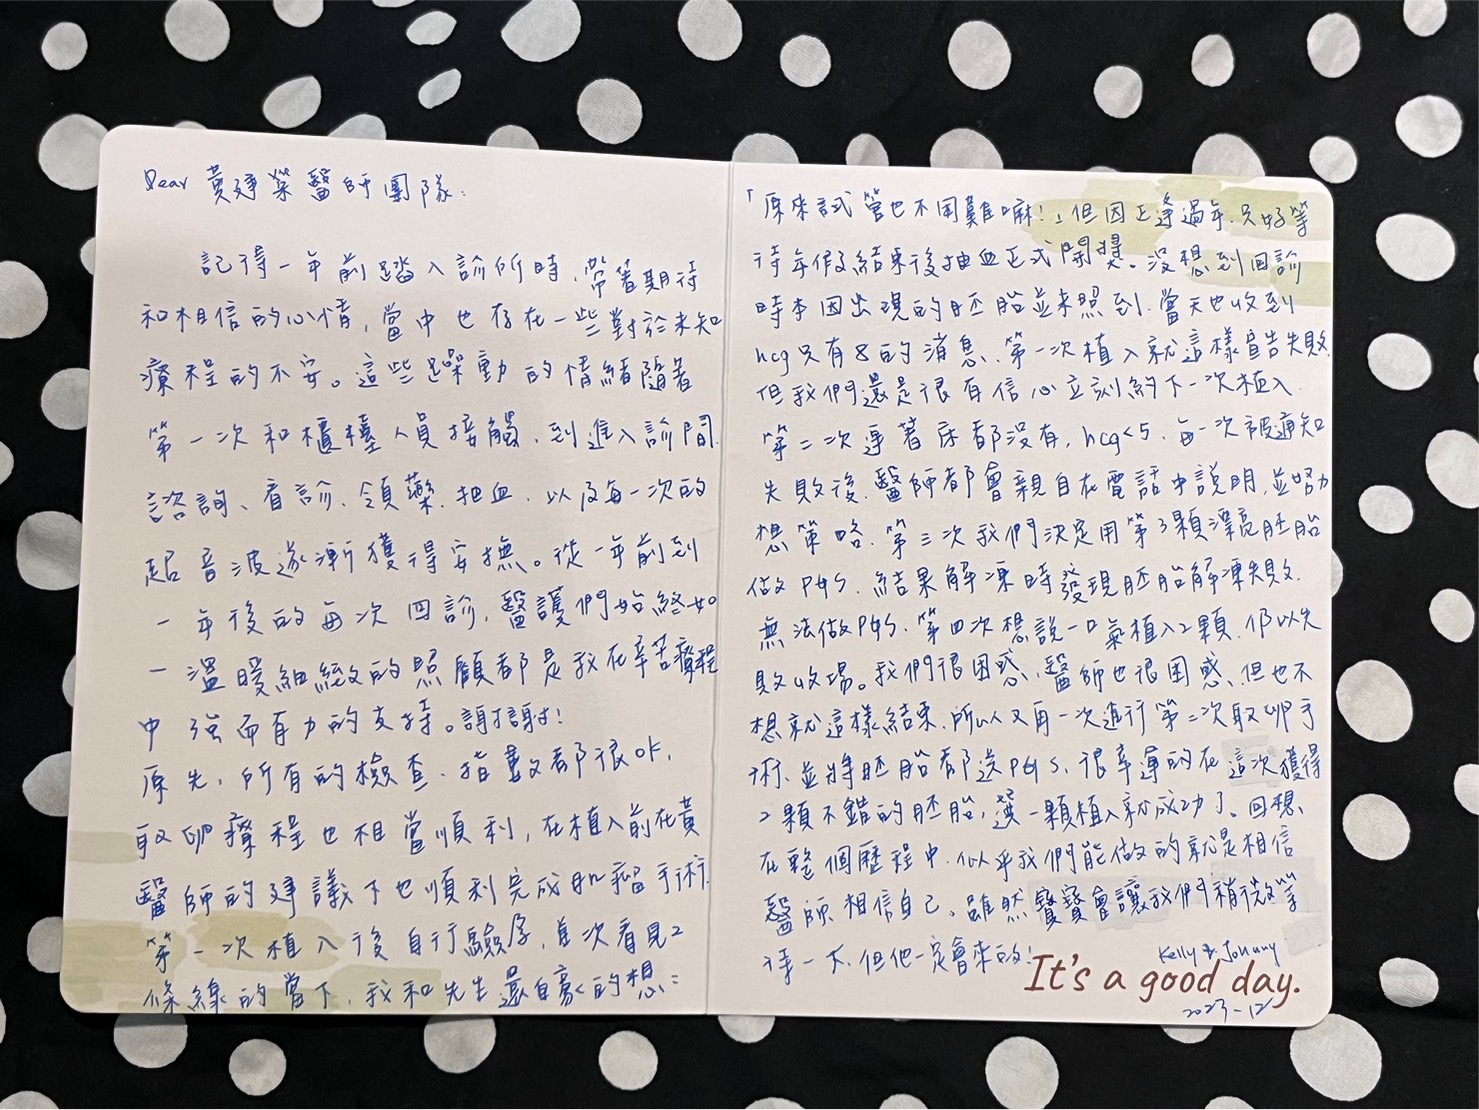 Dear 黃建榮醫師團隊:
記得一年前踏入診所時,帶著期待
和相信的心情,當中也存在一些對於未知
療程的不安。這些躁動的情緒隨著
第一次和櫃檯人員接觸、到進入診間
諮詢、看診、領藥、抽血、以及每一次的
超音波逐漸獲得安撫。從一年前到
一年後的每次回診,醫護們始終如
一溫暖細緻的照顧都是我在辛苦療程
中強而有力的支持。謝謝!
原先,所有的檢查、指數都很OK,
取卵療程也相當順利,在植入前在黃
醫師的建議下也順利完成肌瘤手術,
第一次植入後自行驗孕,首次看見2
條線的當下,我和先生還自豪的想:
「原來試管也不困難嘛!」但因正逢過年,只好等
待年假結束後抽血正式開獎。沒想到回診
時本因出現的胚胎並未照到,當天也收到
hcg只有8的消息、第一次植入就這樣宣告失敗.
但我們還是很有信心立刻約下一次植入.
第二次連著床都沒有, hcg<5, 每一次被通知
失敗後,醫師都會親自在電話中說明,並努力
想策略.第三次我們決定用第3顆漂亮胚胎
做PGS,結果解凍時發現胚胎解凍失敗.
無法做PGS、第四次想說一口氣植入2顆,仍以失
敗收場。我們很困惑,醫師也很困惑、但也不
想就這樣結束,所以又再一次進行第二次取卵手
術、並將胚胎都送PGS、很幸運的在這次獲得
2顆不錯的胚胎,選一顆植入就成功了。回想、
在整個歷程中,似乎我們能做的就是相信
醫師、相信自己。雖然寶寶會讓我們稍微等
待一下,但他一定會來的!
Kelly & Johnny
It's a good day.
2023-12